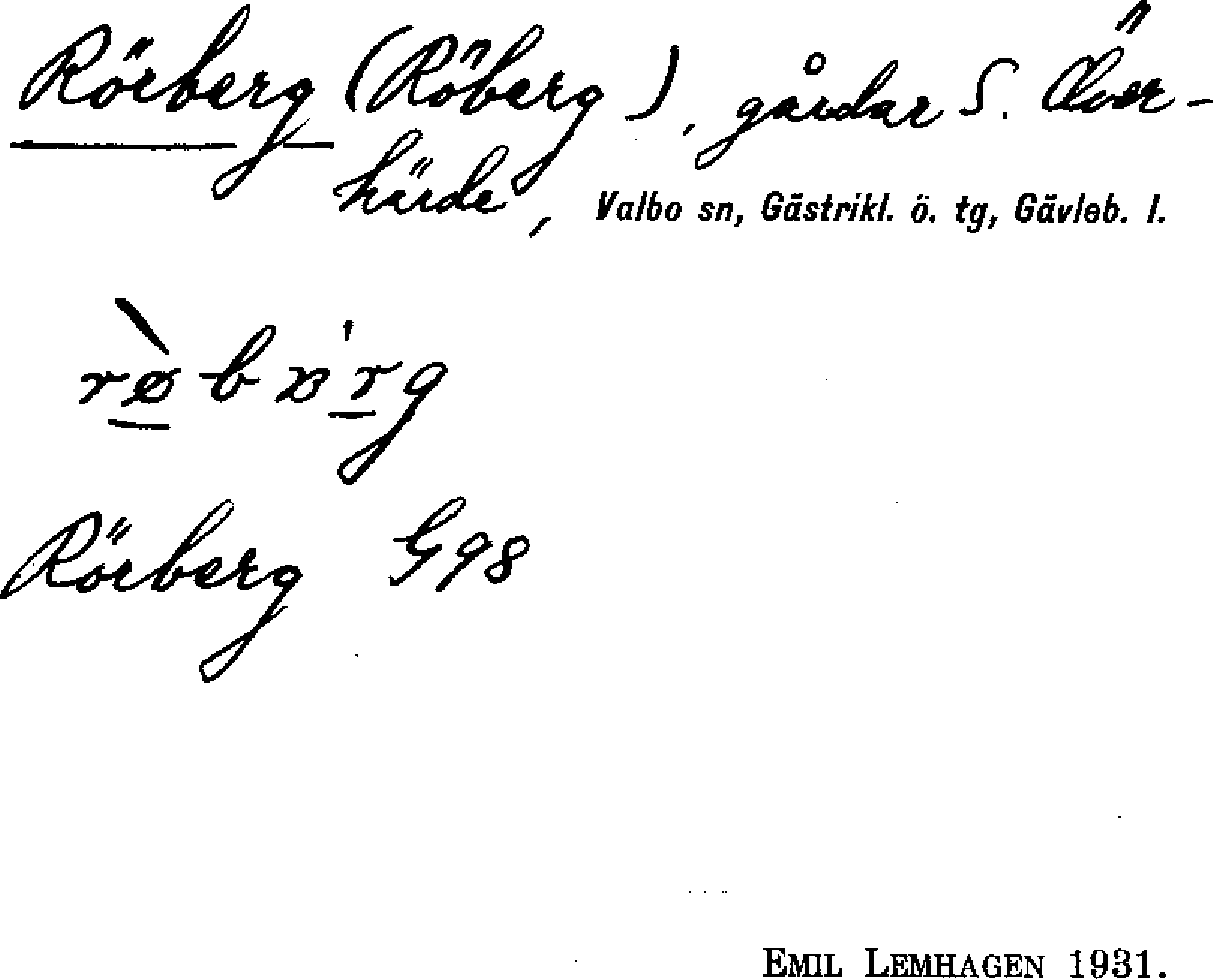 Rörberg (Röberg), gårdar S. Över-
härde, Valbo sn, Gästrikl. ö. tg, Gävleb. l.
Rörberg G98
EMIL LEMHAGEN 1931.